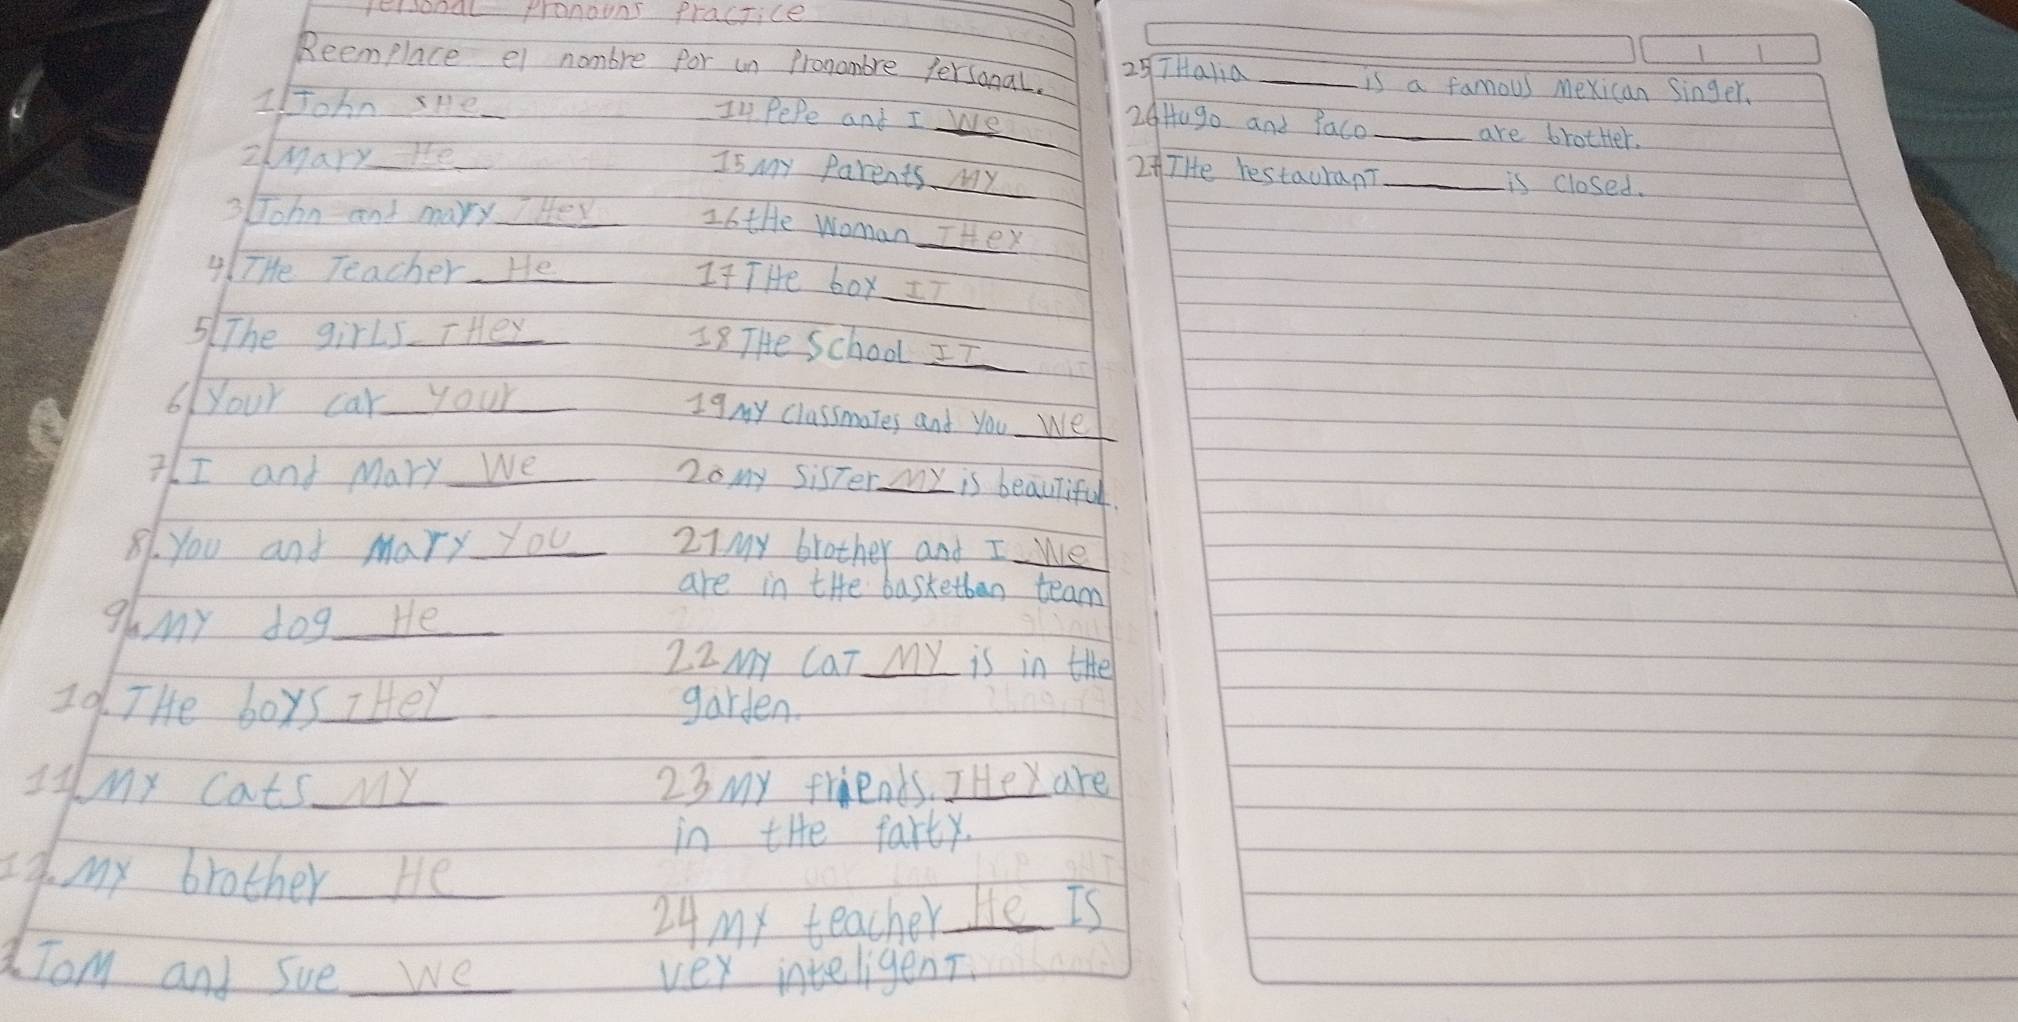 Personal Pronouns Practice
Reemplace el nombre por un Pronombre Personal.
1. John sHe
2. Mary He
3. John and mary THey
4. THe Teacher He
5. The girls THey
6. Your car your
7. I and Mary We
8. You and Mary You
9. My dog He
10. THe boys THey
11. My cats MY
12. My brother He
3. Tom and Sue We
14 PePe and I We
15 My Parents MY
16 tHe Woman THey
17 THe box IT
18 THe School IT
19 My classmates and You We
20 my SisTer MY is beauTiful.
21 My brother and I We
are in tHe basketban team
22 My CaT MY is in tHe
garden.
23 My friends. THey are
in tHe farty.
24 My teacher He IS
vey inteligenT.
25 THalia is a famous Mexican Singer.
26 Hugo and Paco are brotHer.
27 THe restauranT is closed.